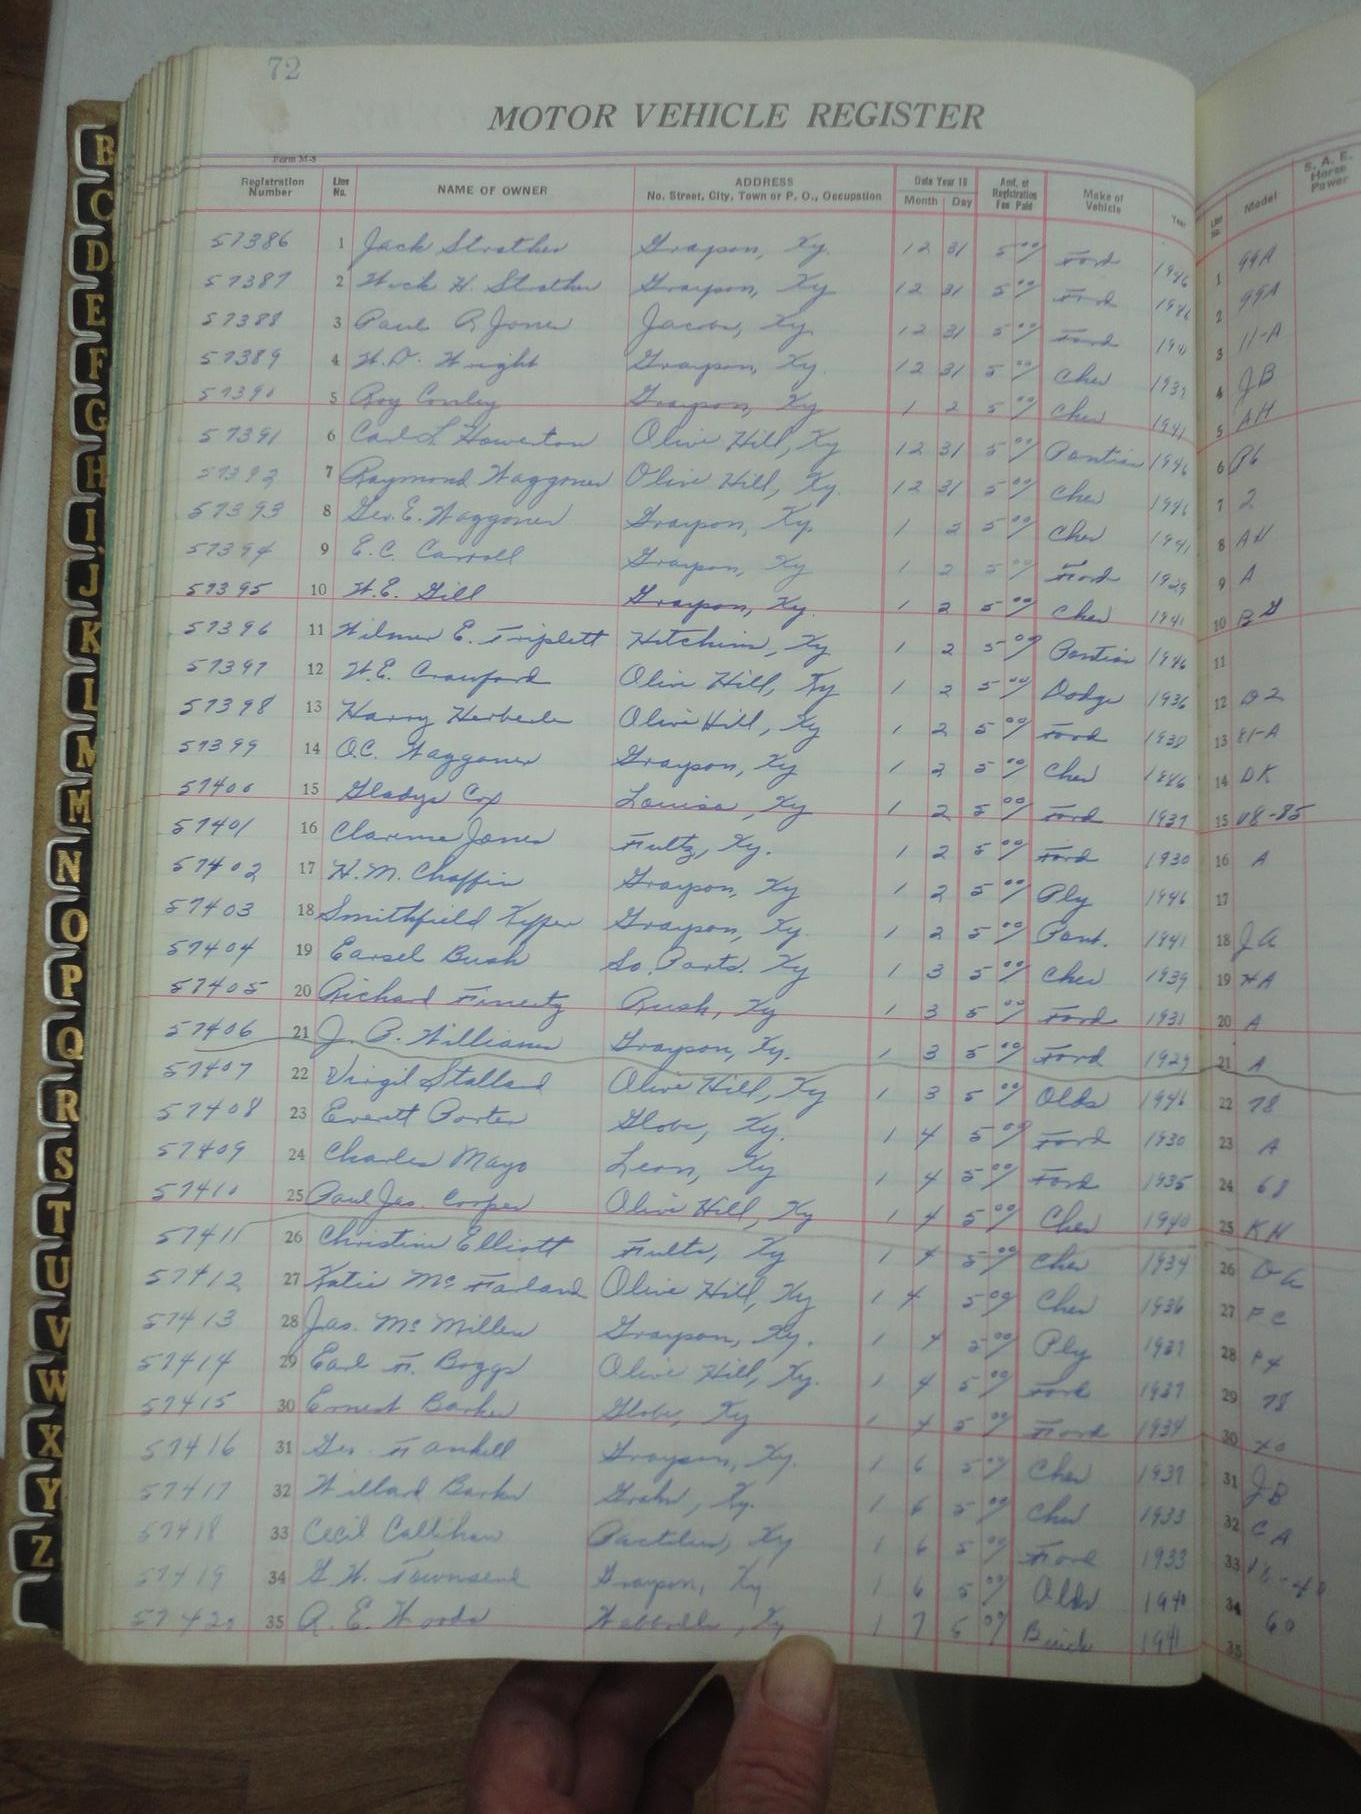 72
MOTOR VEHICLE REGISTER
Form M-8
Registration Number Line No. NAME OF OWNER ADDRESS No. Street, City, Town or P. O., Occupation Date Year 19 Month Day Amt. of Registration Fee Paid Make of Vehicle Year Line No. Model S. A. E. Horse Power
57386 1 Jack Strother Grayson, Ky. 12 31 5 00 Ford 1946 1 99A
57387 2 H. Strother Grayson, Ky 12 31 5 00 Ford 1946 2 99A
57388 3 Paul R. Jones Jacobs, Ky. 12 31 5 00 Ford 1941 3 11-A
57389 4 H.D. Wright Grayson, Ky. 12 31 5 00 Chev 1937 4 JB
57390 5 Roy Conley Grayson, Ky 1 2 5 00 Chev 1941 5 AH
57391 6 Carl L Howerton Olive Hill, Ky 12 31 5 00 Pontiac 1946 6 P6
57392 7 Raymond Waggoner Olive Hill, Ky. 12 31 5 00 Chev 1946 7 2
57393 8 Geo. E. Waggoner Grayson, Ky. 1 2 5 00 Chev 1941 8 AH
57394 9 E.C. Carroll Grayson, Ky 1 2 5 00 Ford 1929 9 A
57395 10 W.E. Gill Grayson, Ky. 1 2 5 00 Chev 1941 10
57396 11 Wilmer E. Triplett Hitchins, Ky 1 2 5 00 Pontiac 1946 11
57397 12 W.E. Crawford Olive Hill, Ky 1 2 5 00 Dodge 1936 12 D2
57398 13 Harry Olive Hill, Ky 1 2 5 00 Ford 1938 13 81-A
57399 14 O.C. Waggoner Grayson, Ky 1 2 5 00 Chev 1946 14 DK
57400 15 Gladys Cox Louisa, Ky 1 2 5 00 Ford 1937 15 V8-85
57401 16 Clarence Jones Fultz, Ky. 1 2 5 00 Ford 1930 16 A
57402 17 H.M. Chaffin Grayson, Ky 1 2 5 00 Ply 1946 17
57403 18 Smithfield Grayson, Ky. 1 2 5 00 Pont. 1941 18 JA
57404 19 Earsel Bush So. Ports. Ky 1 3 5 00 Chev 1939 19
57405 20 Richard Rush, Ky 1 3 5 00 Ford 1931 20 A
57406 21 J. B. Williams Grayson, Ky. 1 3 5 00 Ford 1929 21 A
57407 22 Virgil Stallard Olive Hill, Ky 1 3 5 00 Olds 1946 22 78
57408 23 Everett Porter Globe, Ky. 1 4 5 00 Ford 1930 23 A
57409 24 Charles Mayo Leon, Ky 1 4 5 00 Ford 1935 24 68
57410 25 Paul Jas. Cooper Olive Hill, Ky 1 4 5 00 Chev 1940 25 KH
57411 26 Christine Elliott Fults, Ky 1 4 5 00 Chev 1934 26 DA
57412 27 Katie Mc Farland Olive Hill, Ky 1 4 5 00 Chev 1936 27 FC
57413 28 Jas. Mc Millen Grayson, Ky. 1 4 5 00 Ply 1937 28 P4
57414 29 Earl F. Boggs Olive Hill, Ky. 1 4 5 00 Ford 1937 29 78
57415 30 Ernest Barker Globe, Ky 1 4 5 00 Ford 1934 30 40
57416 31 Geo. Grayson, Ky. 1 6 5 00 Chev 1937 31 JB
57417 32 Willard Barker Grahn, Ky. 1 6 5 00 Chev 1933 32 CA
57418 33 Cecil Callihan Pactolus, Ky 1 6 5 00 Ford 1933 33
57419 34 G. W. Townsend Grayson, Ky 1 6 5 00 Olds 1940 34 60
57420 35 R. E. Woods Webbville, Ky 1 7 5 00 Buick 1941 35
B
C
D
E
F
G
H
I
J
K
L
M
M
N
O
P
Q
R
S
T
U
V
W
X
Y
Z